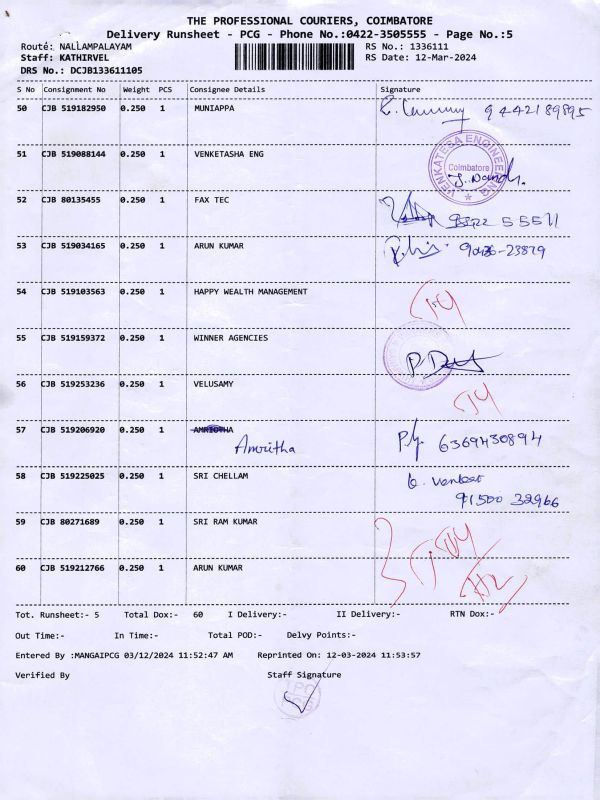 THE PROFESSIONAL COURIERS, COIMBATORE
Delivery Runsheet - PCG - Phone No.:0422-3505555 - Page No.:5
Route: NALLAMPALAYAM RS No.: 1336111
Staff: KATHIRVEL RS Date: 12-Mar-2024
DRS No.: DCJB133611105
S No Consignment No Weight PCS Consignee Details Signature
50 CJB 519182950 0.250 1 MUNIAPPA 9442189895
51 CJB 519088144 0.250 1 VENKETASHA ENG
VENKATESA ENGINEERING
Coimbatore
52 CJB 80135455 0.250 1 FAX TEC
53 CJB 519034165 0.250 1 ARUN KUMAR
54 CJB 519103563 0.250 1 HAPPY WEALTH MANAGEMENT
55 CJB 519159372 0.250 1 WINNER AGENCIES
56 CJB 519253236 0.250 1 VELUSAMY
57 CJB 519206920 0.250 1 AMRIOTHA
Amritha 6369430894
58 CJB 519225025 0.250 1 SRI CHELLAM
91500 32966
59 CJB 80271689 0.250 1 SRI RAM KUMAR
60 CJB 519212766 0.250 1 ARUN KUMAR
Tot. Runsheet:- 5 Total Dox:- 60 I Delivery:- II Delivery:- RTN Dox:-
Out Time:- In Time:- Total POD:- Delvy Points:-
Entered By :MANGAIPCG 03/12/2024 11:52:47 AM Reprinted On: 12-03-2024 11:53:57
Verified By Staff Signature